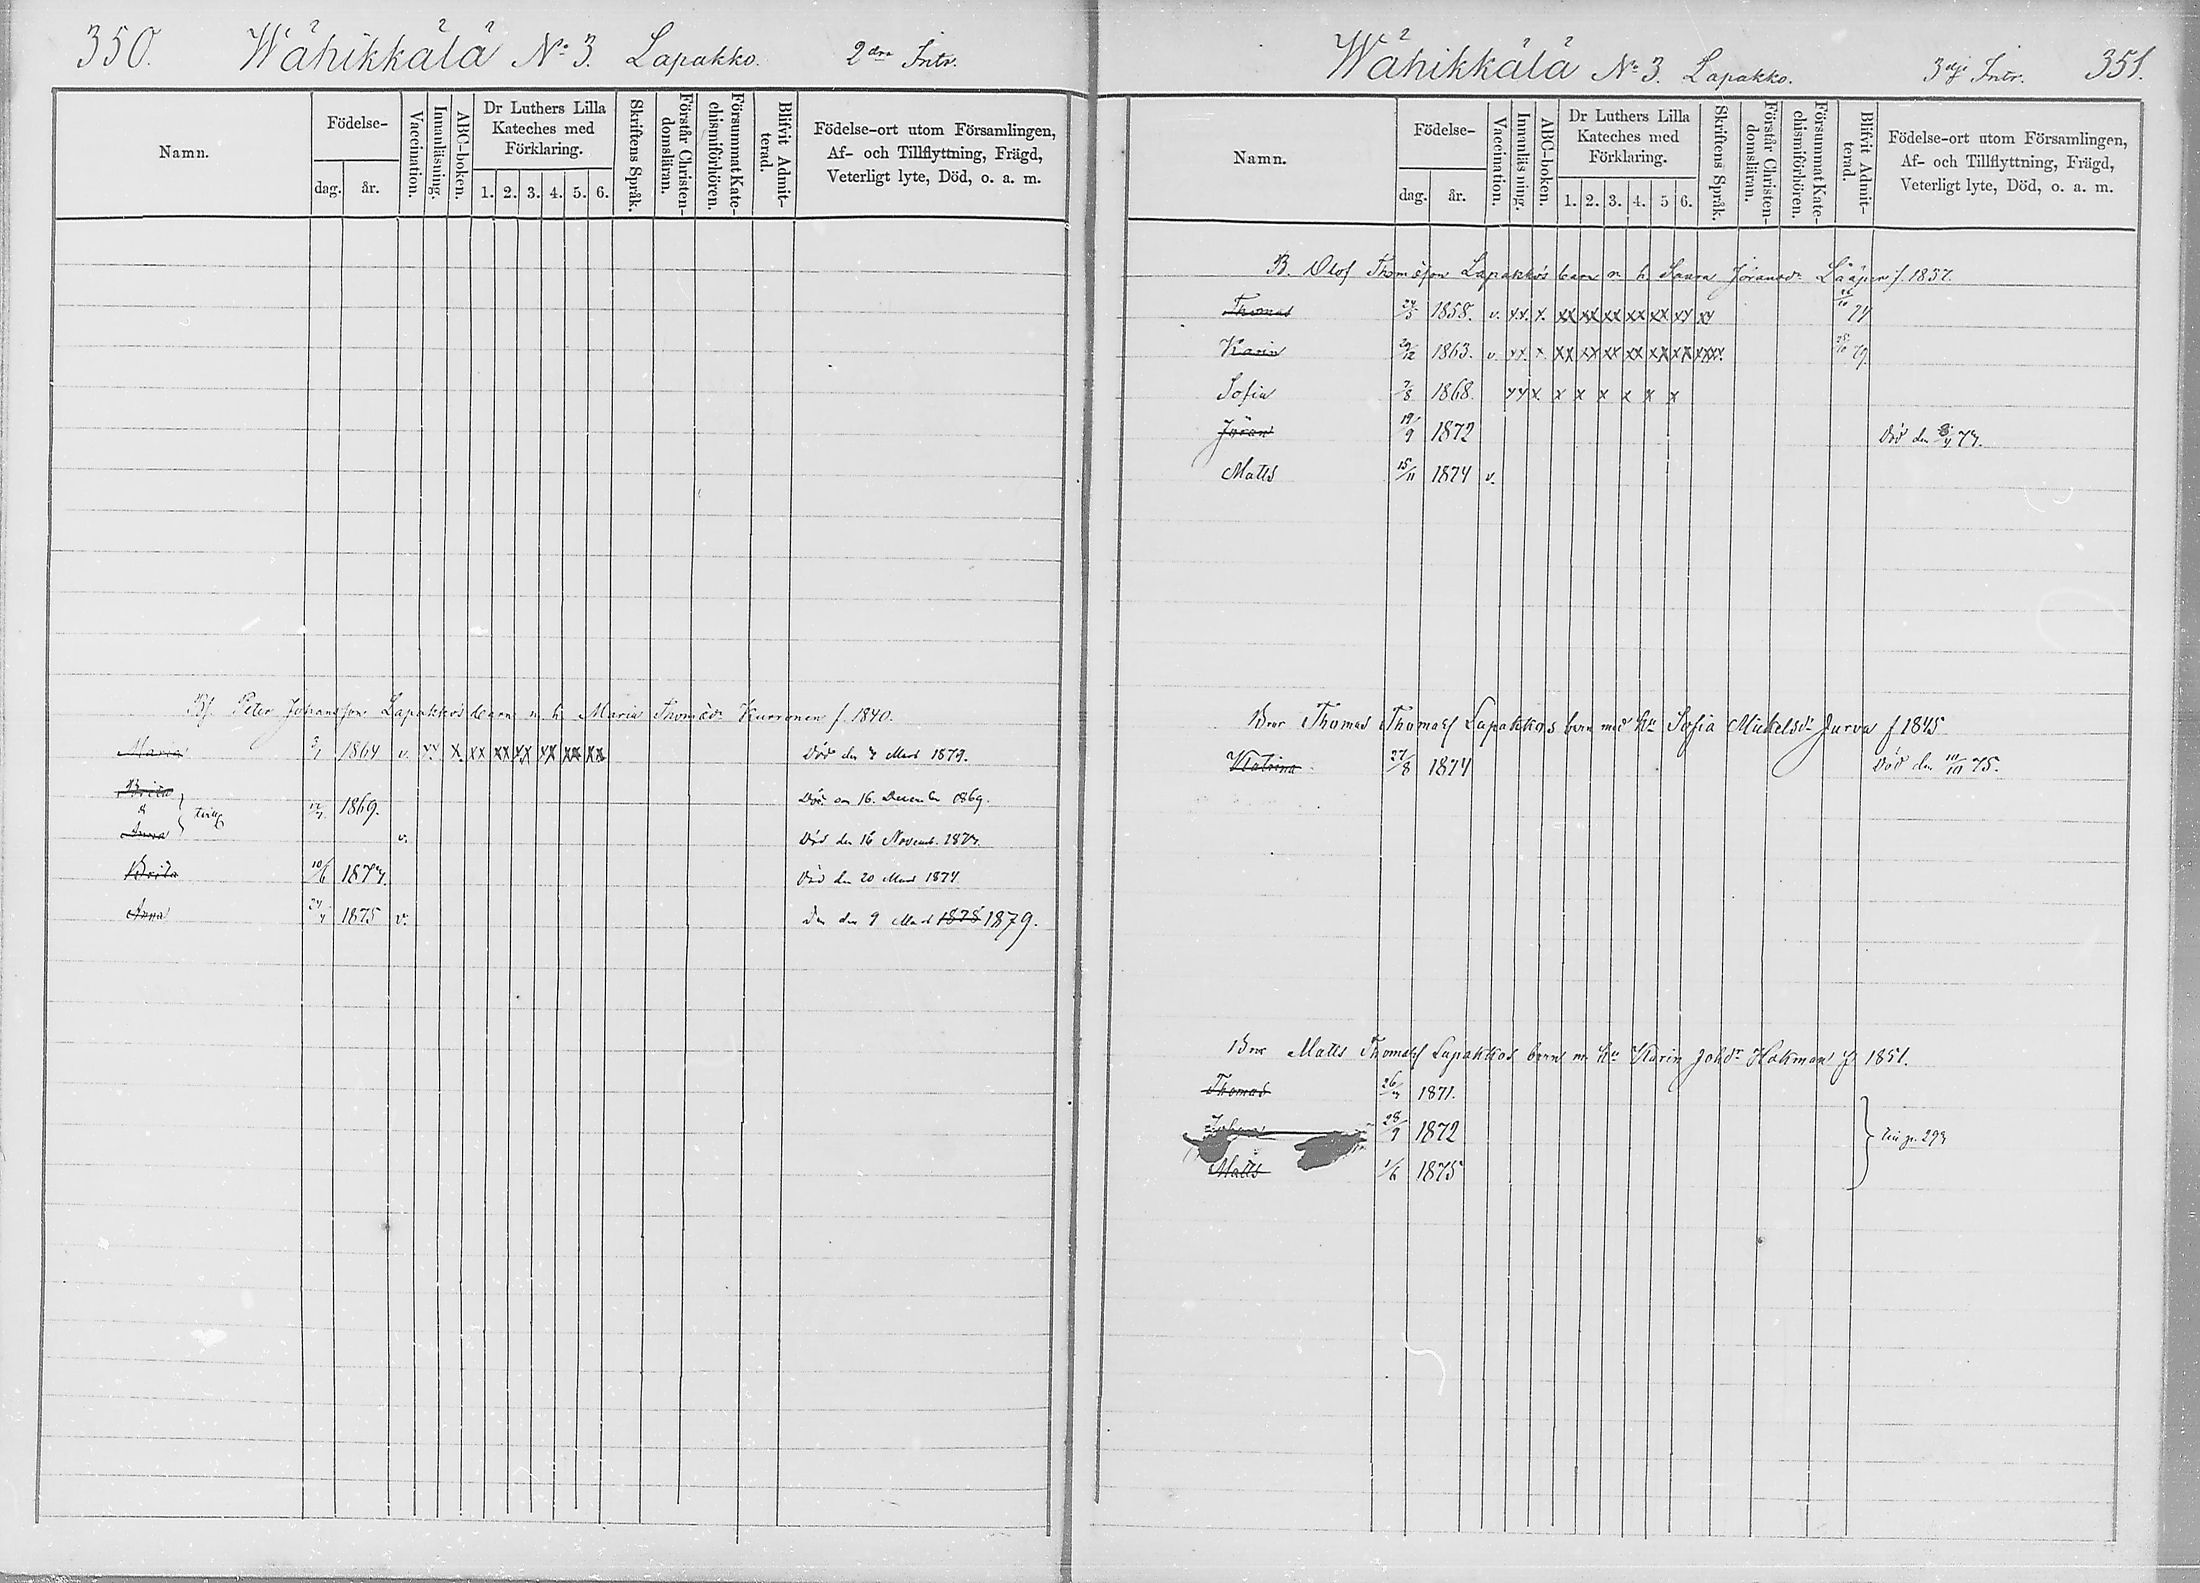 350. Wähikkälä No 3. Lapakko. 2dra Intr.
Namn.
Födelse-
dag. år.
Vaccination.
Innanläsning.
ABC-boken.
Dr Luthers Lilla
Kateches med
Förklaring.
1. 2. 3. 4. 5. 6.
Skriftens Språk.
Förstår Christen-
domsläran.
Försummat Kate-
chismiförhören.
Blifvit Admit-
terad.
Födelse-ort utom Församlingen,
Af- och Tillflyttning, Frägd,
Veterligt lyte, Död, o. a. m.
Peter Johansson Lapakkos barn m. h. Maria Thomasdr Kurronen f. 1840.
Maria 3/1 1864 v. xx x xx xx xx xx xx xx Död den Mars 1879.
Brita 1869. Död den 16. December 1869.
&
Anna v. Död den 16 Novemb.
Brita 10/6 Död den 20 Mars 1874
Anna 1875 v. den 9 Mars 1878 1879.
Wähikkälä No 3. Lapakko. 3dje Intr. 351.
Namn.
Födelse-
dag. år.
Vaccination.
Innanläsning.
ABC-boken.
Dr Luthers Lilla
Kateches med
Förklaring.
1. 2. 3. 4. 5 6.
Skriftens Språk.
Förstår Christen-
domsläran.
Försummat Kate-
chismiförhören.
Blifvit Admit-
terad.
Födelse-ort utom Församlingen,
Af- och Tillflyttning, Frägd,
Veterligt lyte, Död, o. a. m.
B. Olof Thomasson Lapakkos barn m. h. Jöransdr Lääperi f. 1837.
Thomas 24/5 1858. v. xx. x. xx xx xx xx xx xx xx 74
Karin 29/12 1863. v. xx x xx xx xx xx xx xx xxxx. 79.
Sofia 7/8 1868. xx x x x x x x x
Jöran 19/9 1872 Död den
Matts 15/11 1874 v.
Bror Thomas Thomass Lapakkos barn med hu Sofia Mickelsdr Jurva f 1845
Katrina 27/8 1874 Död den 10/10 75.
Bror Matts Thomass Lapakkos barn m hu Karin Johdr Hakman f 1851.
Thomas 1871.
Johan 28/9 1872
Matts 1/6 1875